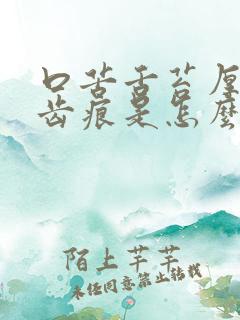 口苦舌苔厚
齿痕是怎麽
陌上芊芊
未经同意禁止转载